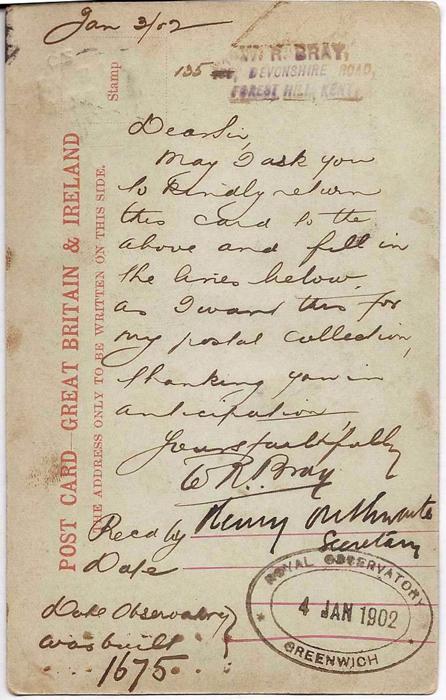 Jan 3/02
W. R. BRAY,
135 DEVONSHIRE ROAD,
FOREST HILL, KENT.
Stamp
POST CARD-GREAT BRITAIN & IRELAND
THE ADDRESS ONLY TO BE WRITTEN ON THIS SIDE.
Dear Sir,
May I ask you
to kindly return
this card to the
above and fill in
the lines below,
as I want this for
my postal collection,
thanking you in
anticipation
Yours faithfully
W R. Bray
Recd by Henry Outhwaite
Secretary
Date
ROYAL OBSERVATORY
4 JAN 1902
GREENWICH
Date Observatory
was built
1675